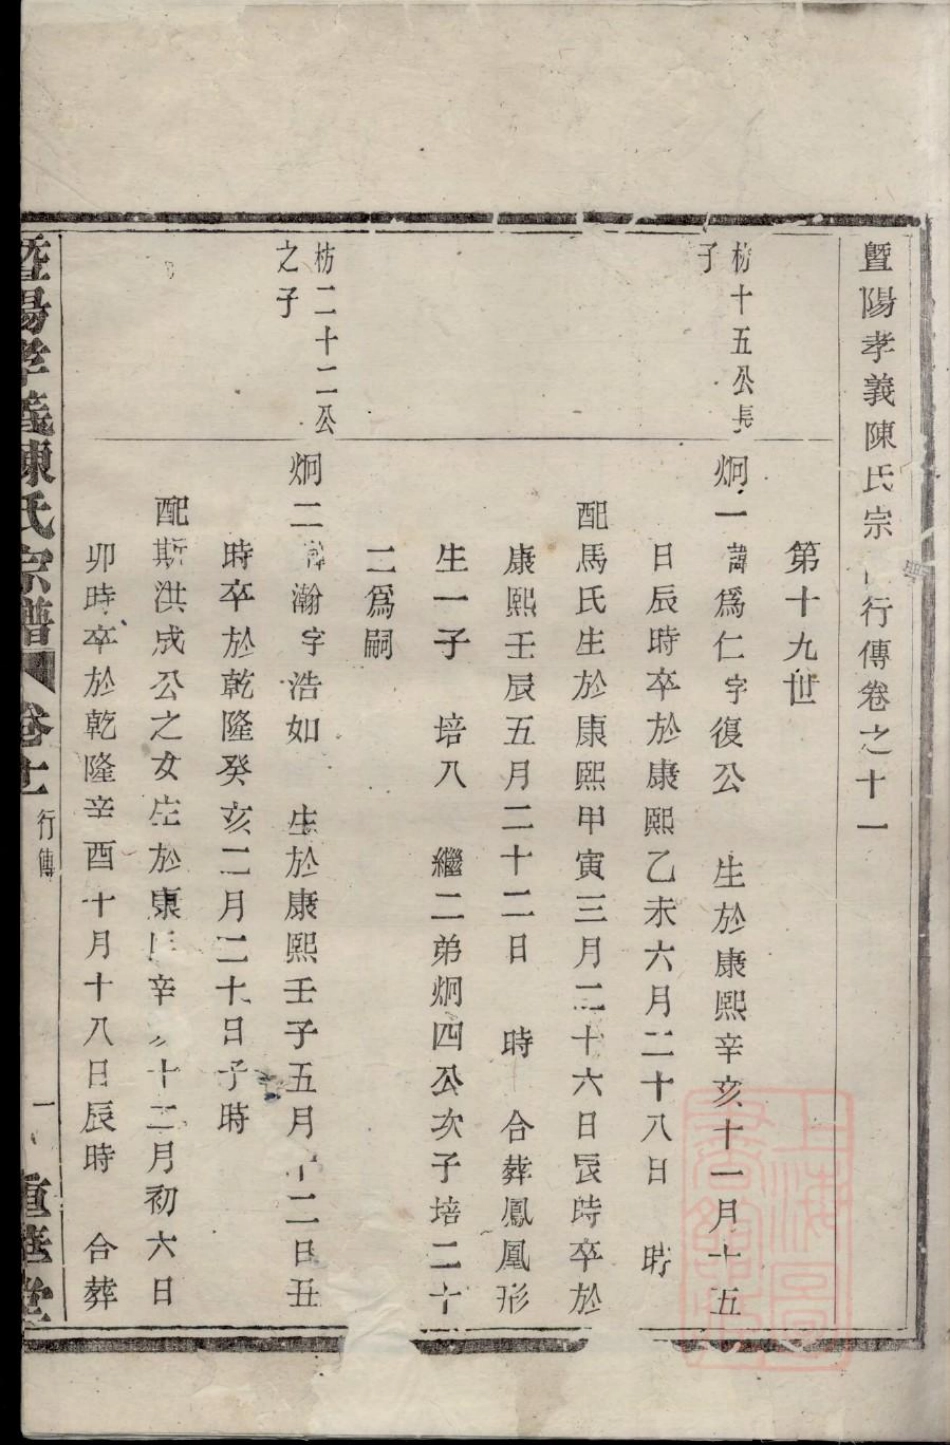 暨陽孝義陳氏宗 行傳卷之十一
第十九世
枋十五公長
子
炯一諱爲仁字復公 生於康熙辛亥十一月十五
日辰時卒於康熙乙未六月二十八日 時
配馬氏生於康熙甲寅三月二十六日辰時卒於
康熙壬辰五月二十二日 時 合葬鳳凰形
生一子 培八 繼二弟炯四公次子培二十
二爲嗣
枋二十二公
之子
炯二諱瀚字浩如 生於康熙壬子五月 二日丑
時卒於乾隆癸亥二月二十日子時
配斯洪成公之女生於康 辛 十二月初六日
卯時卒於乾隆辛酉十月十八日辰時 合葬
暨陽孝義陳氏宗譜 卷十一 行傳 一 堂
上海圖書館藏